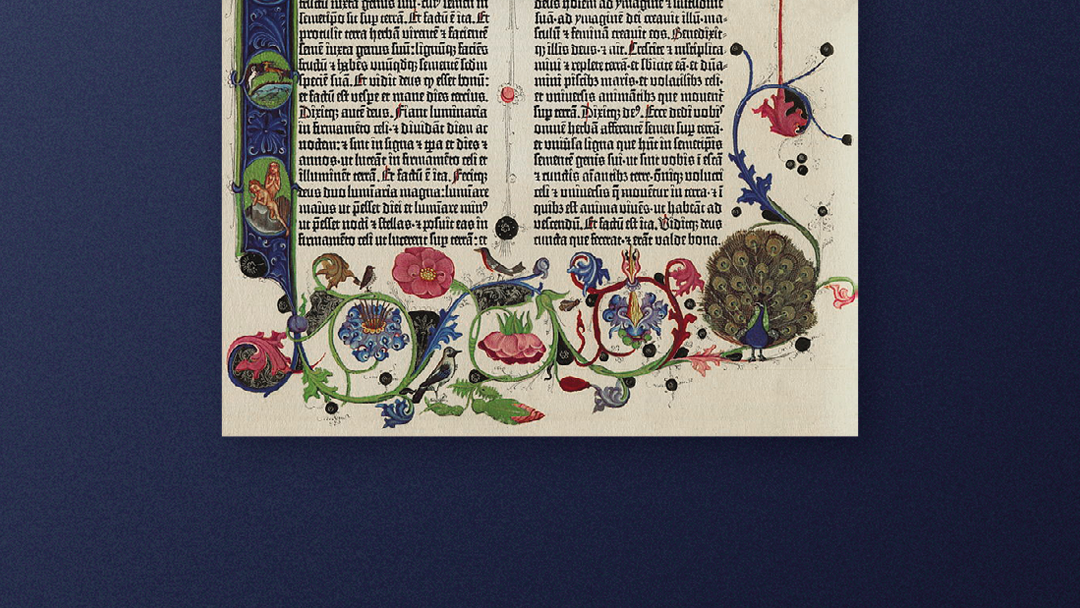 semetipso sit sup terrā. Et factū ē ita. Et
protulit terra herbā virentē & facientē
semē iuxta genus suū: lignūq; faciēs
fructū & habēs unūqdq; sementē scdm
speciē suā. Et vidit deus ꝙ esset bonū:
et factū est vespe et mane dies tercius.
Dixitq; autē deus. Fiant luminaria
in firmamēto celi· & dividāt diem ac
noctem· & sint in signa & tpa et dies &
annos· ut luceāt in firmamēto celi et
illuminēt terrā. Et factū ē ita. Fecitq;
deus duo luminaria magna: luminare
maius ut pesset diei et luminare minꝰ
ut pesset nocti & stellas· & posuit eas in
firmamēto celi ut lucerent sup terrā: et
suā· ad ymaginē dei creavit illū· mas-
culū & feminā creavit eos. Benedixit-
q; illis deus· & ait. Crescite & multiplica-
mini & replete terrā· et subicite eā· et dña-
mini piscibꝫ maris· et volatilibꝫ celi·
et universis animātibꝫ que moventʳ
sup terrā. Dixitq; deꝰ. Ecce dedi vobis
omnē herbā afferentē semen sup terrā·
et univsa ligna que hñt in semetipis
sementē genis sui· ut sint vobis ī escā
& cunctis aīantibꝫ terre· oīq; volucri
celi & universis q moventʳ in terra· & ī
quibꝫ est anima vivēs· ut habeāt ad
vescendū. Et factū est ita. Viditq; deus
cuncta que fecerat· & erāt valde bona.